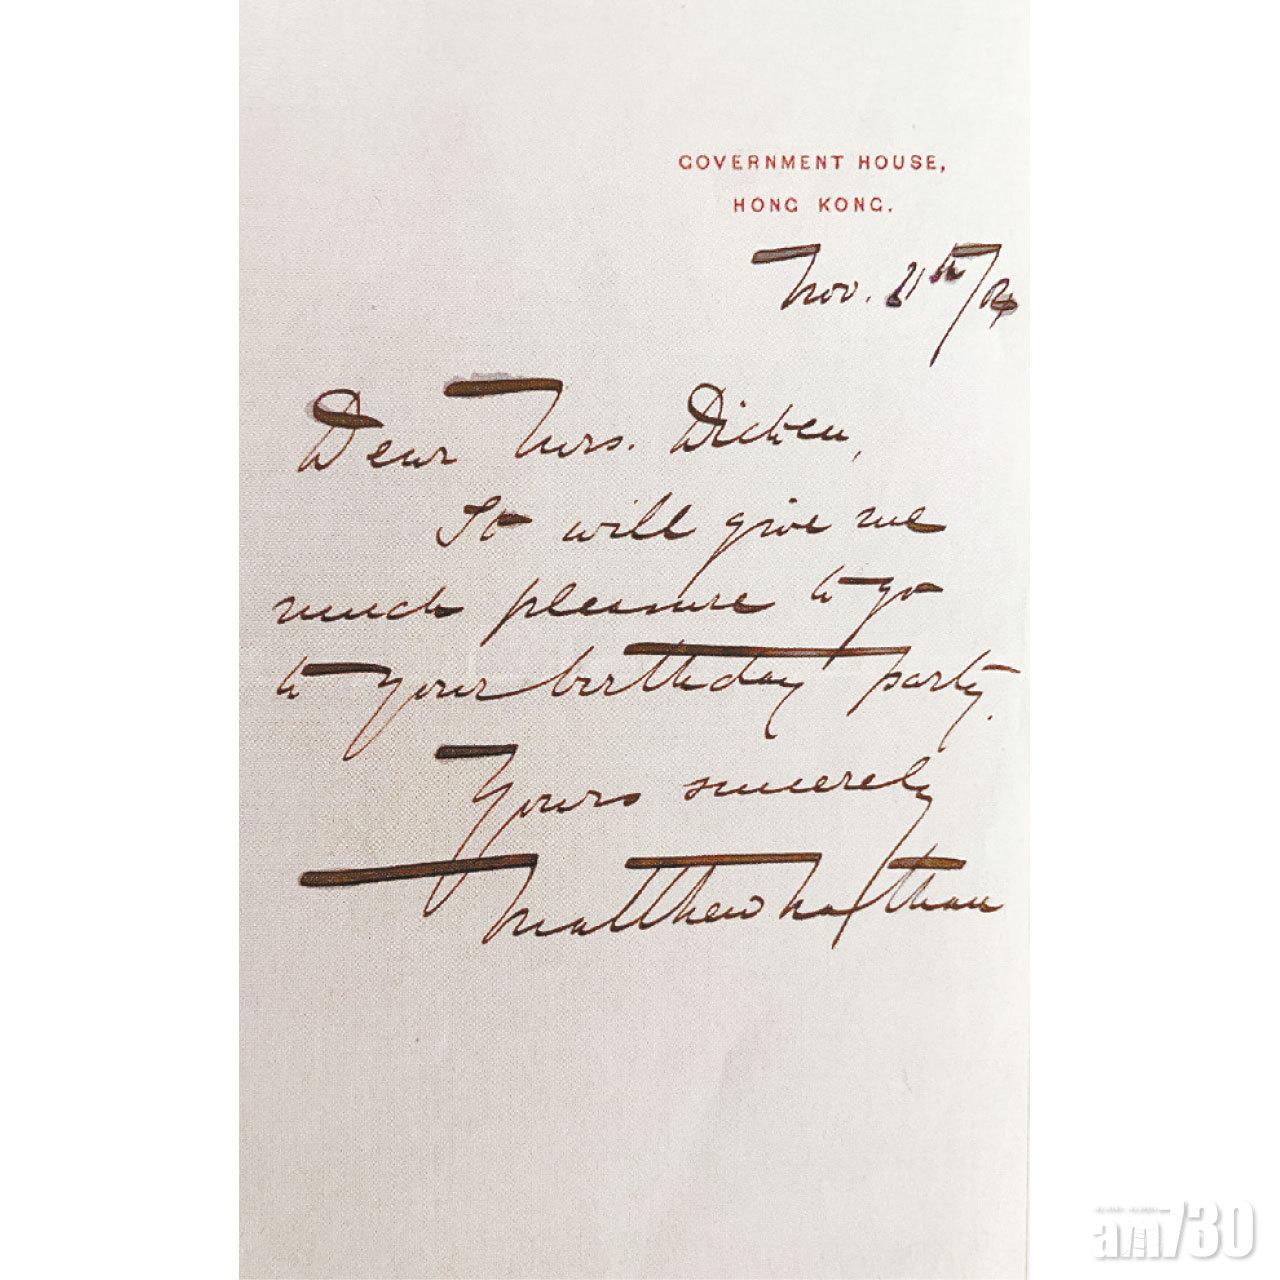 GOVERNMENT HOUSE,
HONG KONG.
Nov. 11th/04
Dear Mrs. Dicken,
It will give me
much pleasure to go
to your birthday party.
Yours sincerely
Matthew Nathan
am730